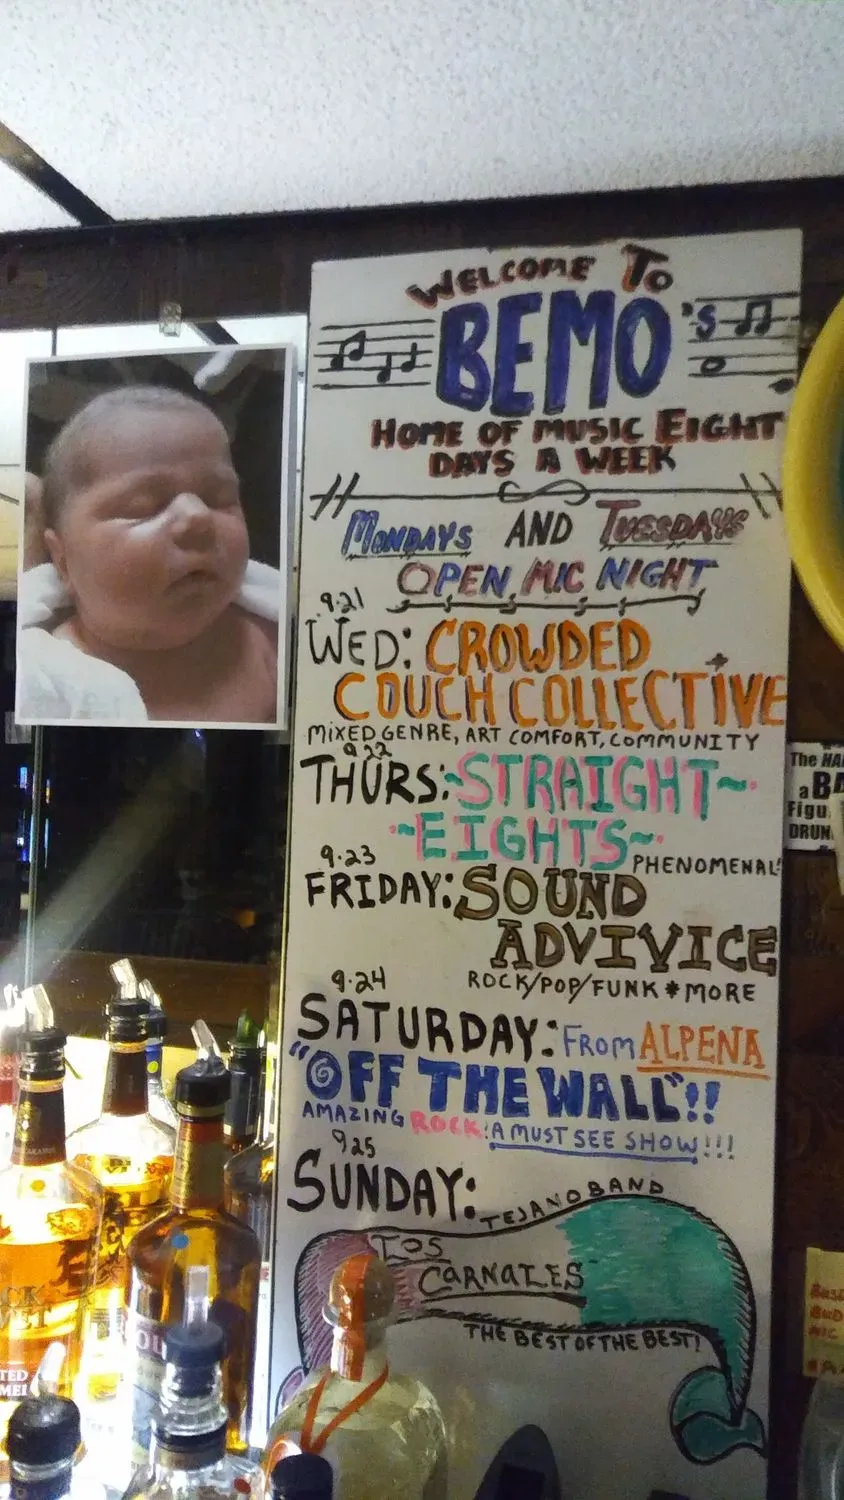 WELCOME TO
BEMO'S
HOME OF MUSIC EIGHT
DAYS A WEEK
MONDAYS AND TUESDAYS
OPEN MIC NIGHT
9.21
WED: CROWDED
COUCH COLLECTIVE
MIXED GENRE, ART COMFORT, COMMUNITY
9.22
THURS: ~STRAIGHT~
~EIGHTS~
PHENOMENAL!
9.23
FRIDAY: SOUND
ADVIVICE
ROCK/POP/FUNK * MORE
9.24
SATURDAY: FROM ALPENA
"OFF THE WALL"!!
AMAZING ROCK! A MUST SEE SHOW!!!
9.25
SUNDAY:
TEJANO BAND
LOS
CARNALES
THE BEST OF THE BEST!
The
a
Figu
DRUN